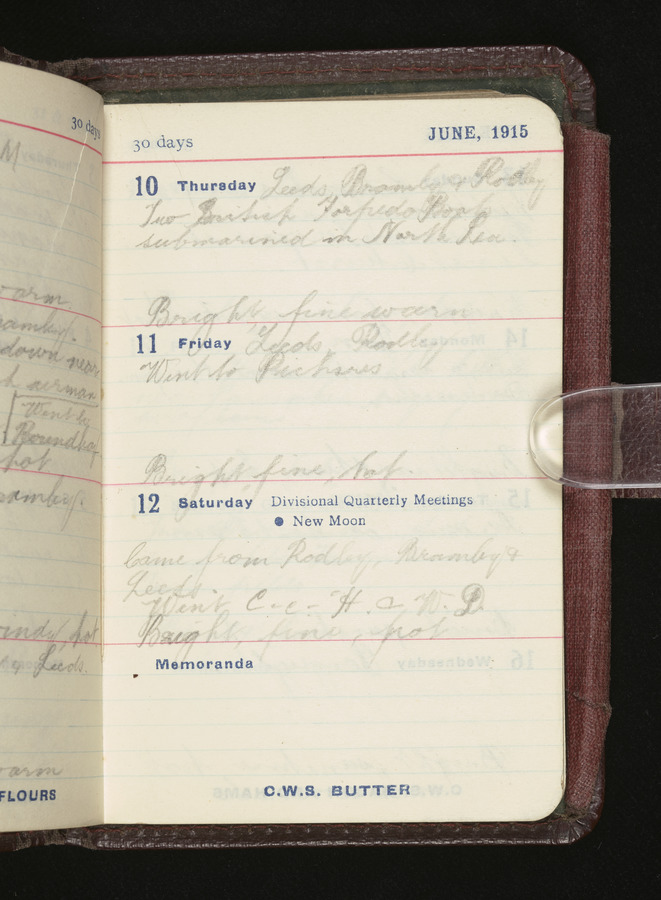 30 days
M
arm
down near
airman
Went by
Round hay
hot
windy, hot
Leeds.
arm
FLOURS
30 days JUNE, 1915
10 Thursday Leeds, Bramley & Rodley
Two British Torpedo Boats
submarined in North Sea.
Bright, fine warm
11 Friday Leeds, Rodley
Went to Pictures
Bright, fine, hot.
12 Saturday Divisional Quarterly Meetings
● New Moon
Came from Rodley, Bramley &
Leeds.
Went C.-c.- H. & W. D.
Bright, fine, hot
Memoranda
C.W.S. BUTTER